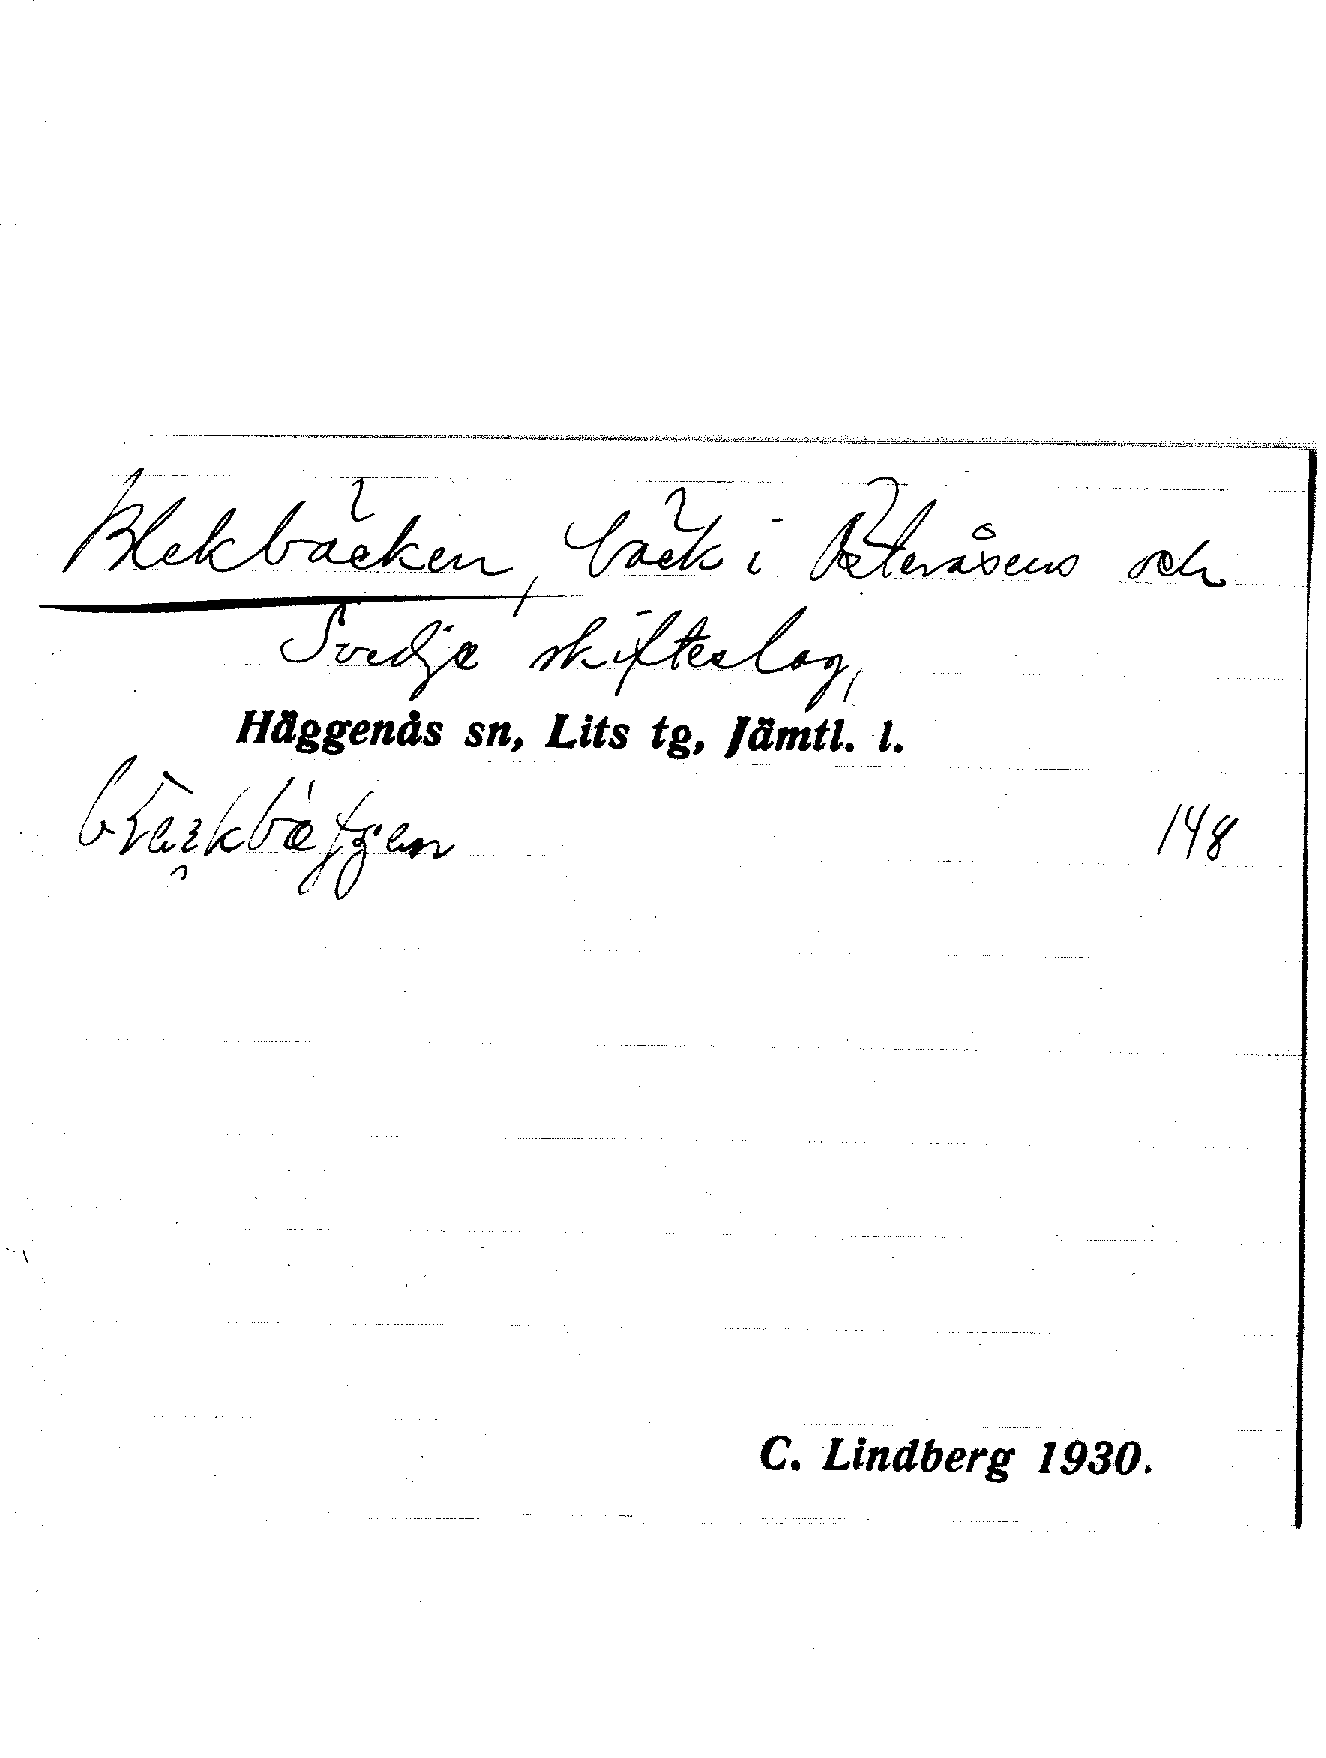 Blekbäcken, bäck i Österåsens och
Svedje skifteslag,
Häggenås sn, Lits tg, Jämtl. l.
148
C. Lindberg 1930.